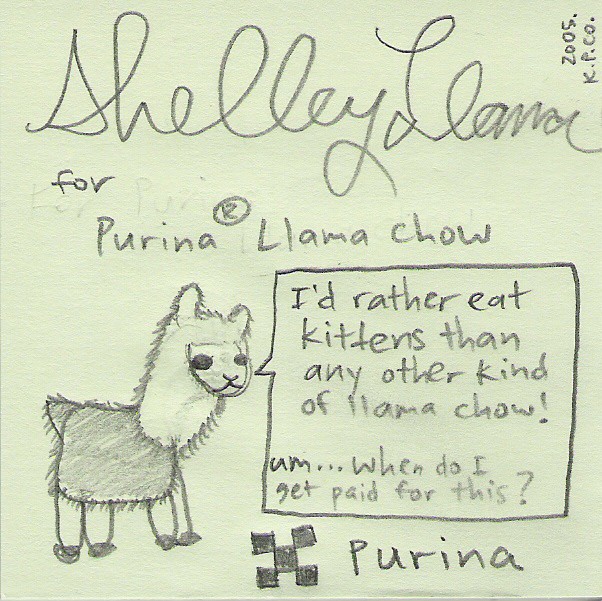 Shelley Llama
2005.
K.P.CO.
for
Purina® Llama Chow
I'd rather eat
kittens than
any other kind
of llama chow!
um... When do I
get paid for this?
Purina